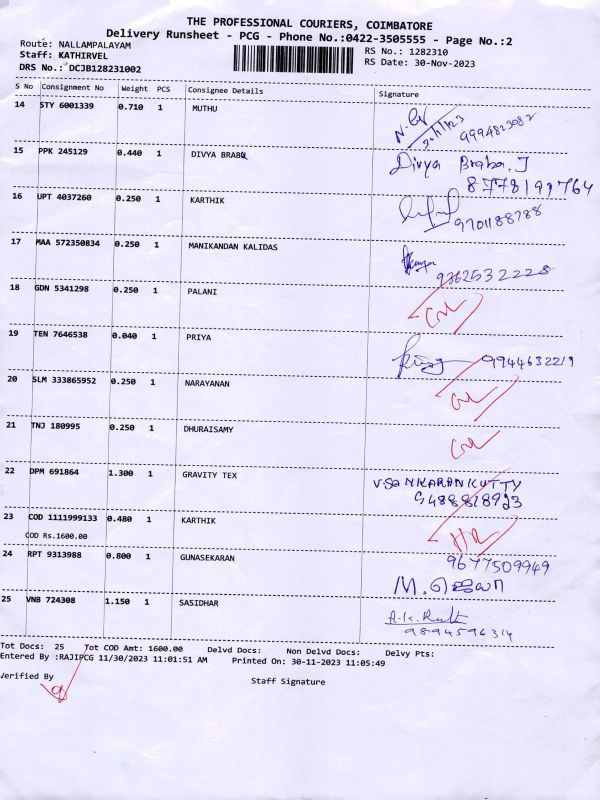 THE PROFESSIONAL COURIERS, COIMBATORE
Delivery Runsheet - PCG - Phone No.:0422-3505555 - Page No.:2
Route: NALLAMPALAYAM RS No.: 1282310
Staff: KATHIRVEL RS Date: 30-Nov-2023
DRS No.: DCJB128231002
S No Consignment No Weight PCS Consignee Details Signature
14 STY 6001339 0.710 1 MUTHU
9994823082
15 PPK 245129 0.440 1 DIVYA BRABU Divya Braba.J
8778199764
16 UPT 4037260 0.250 1 KARTHIK
9701188788
17 MAA 572350834 0.250 1 MANIKANDAN KALIDAS
9362532228
18 GDN 5341298 0.250 1 PALANI
19 TEN 7646538 0.040 1 PRIYA 9944632219
20 SLM 333865952 0.250 1 NARAYANAN
21 TNJ 180995 0.250 1 DHURAISAMY
22 DPM 691864 1.300 1 GRAVITY TEX V.SANKARANKUTTY
9488818923
23 COD 1111999133 0.480 1 KARTHIK
COD Rs.1600.00
24 RPT 9313988 0.800 1 GUNASEKARAN 9677509949
M. ஜெயா
25 VNB 724308 1.150 1 SASIDHAR
9894596314
Tot Docs: 25 Tot COD Amt: 1600.00 Delvd Docs: Non Delvd Docs: Delvy Pts:
Entered By :RAJIPCG 11/30/2023 11:01:51 AM Printed On: 30-11-2023 11:05:49
Verified By
Staff Signature